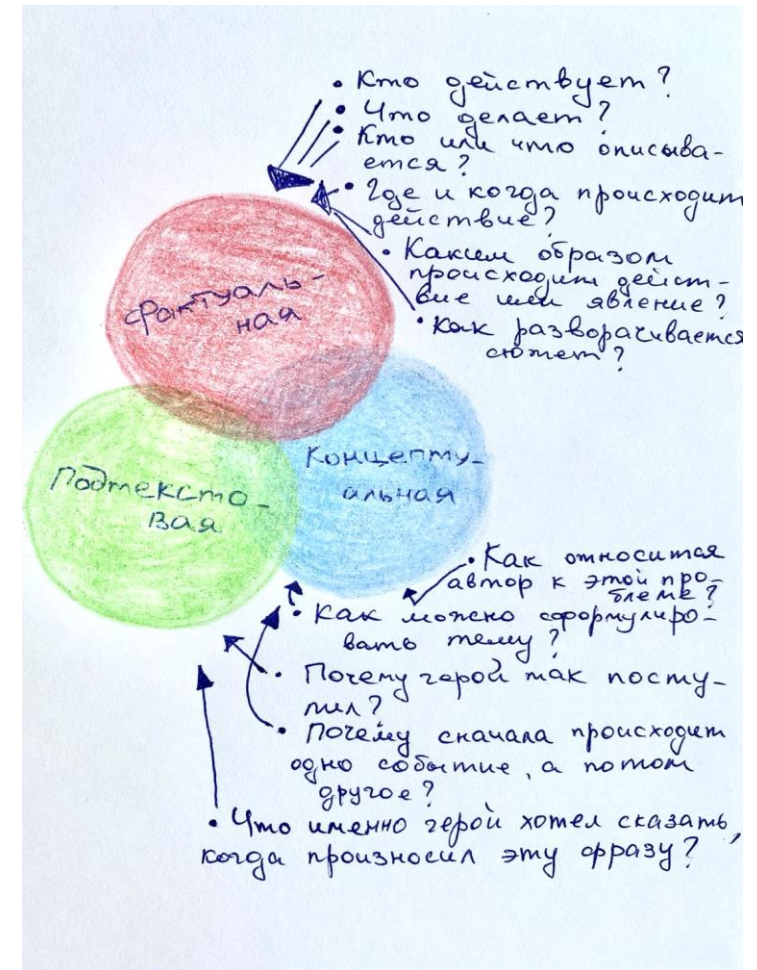 • Кто действует?
• Что делает?
• Кто или что описыва-
ется?
• Где и когда происходит
действие?
• Каким образом
происходит дейст-
вие или явление?
• Как разворачивается
сюжет?
Фактуаль-
ная
Концепту-
альная
Подтексто-
вая
• Как относится
автор к этой про-
блеме?
• Как можно сформулиро-
вать тему?
• Почему герой так посту-
пил?
• Почему сначала происходит
одно событие, а потом
другое?
• Что именно герой хотел сказать,
когда произносил эту фразу?